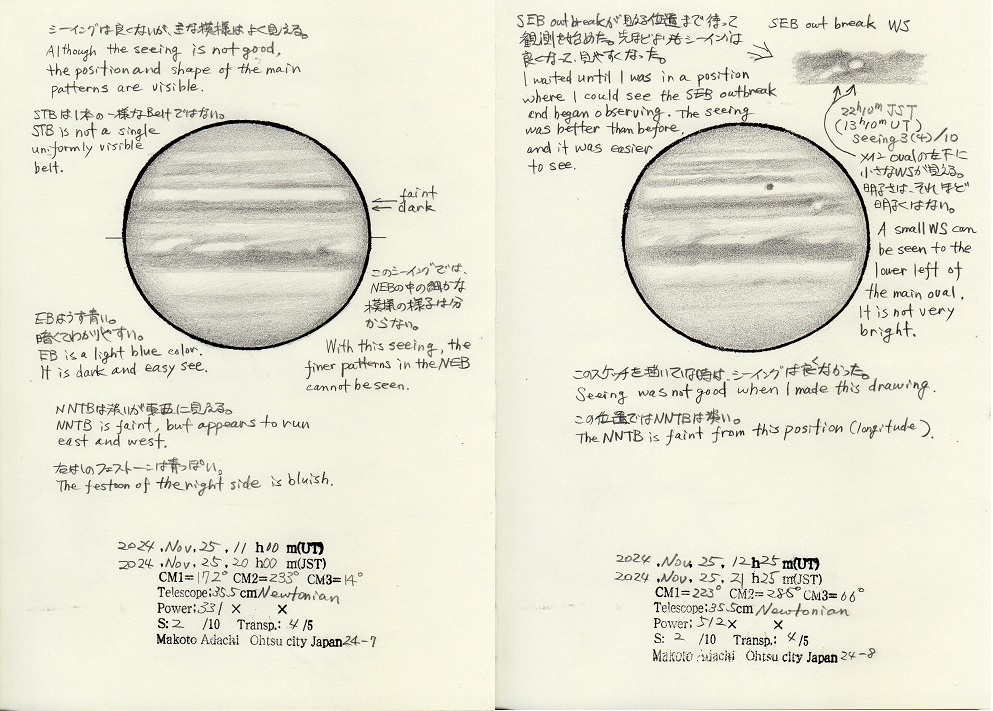 シーイングは良くないが、主な模様はよく見える。
Although the seeing is not good,
the position and shape of the main
patterns are visible.
STBは1本の一様なBeltではない。
STB is not a single
uniformly visible
belt.
faint
dark
このシーイングでは、
NEBの中の細かな
模様の様子は分
からない。
With this seeing, the
finer patterns in the NEB
cannot be seen.
EBはうす青い。
暗くてわかりやすい。
EB is a light blue color.
It is dark and easy see.
NNTBは淡いが東西に見える。
NNTB is faint, but appears to run
east and west.
右はしのフェストーンは青っぽい。
The festoon of the right side is bluish.
2024.Nov.25.11 h00 m(UT)
2024.Nov.25.20 h00 m(JST)
CM1=172° CM2=233° CM3=14°
Telescope:35.5cm Newtonian
Power:331 × ×
S: 2 /10 Transp.: 4/5
Makoto Adachi Ohtsu city Japan 24-7
SEB outbreakが見える位置まで待って
観測を始めた。先ほどよりもシーイングは
良くなって、見やすくなった。
I waited until I was in a position
where I could see the SEB outbreak
and began observing. The seeing
was better than before,
and it was easier
to see.
SEB out break WS
22h10m JST
(13h10m UT)
seeing 3(4)/10
メイン ovalの左下に
小さなWSが見える。
明るさは、それほど
明るくはない。
A small WS can
be seen to the
lower left of
the main oval.
It is not very
bright.
このスケッチを描いている時は、シーイングは良くなかった。
Seeing was not good when I made this drawing.
この位置ではNNTBは淡い。
The NNTB is faint from this position (longitude).
2024.Nov.25.12h25m(UT)
2024.Nov.25.21 h25 m(JST)
CM1=223° CM2=285° CM3=66°
Telescope:35.5cm Newtonian
Power:512× ×
S: 2 /10 Transp.: 4/5
Makoto Adachi Ohtsu city Japan 24-8